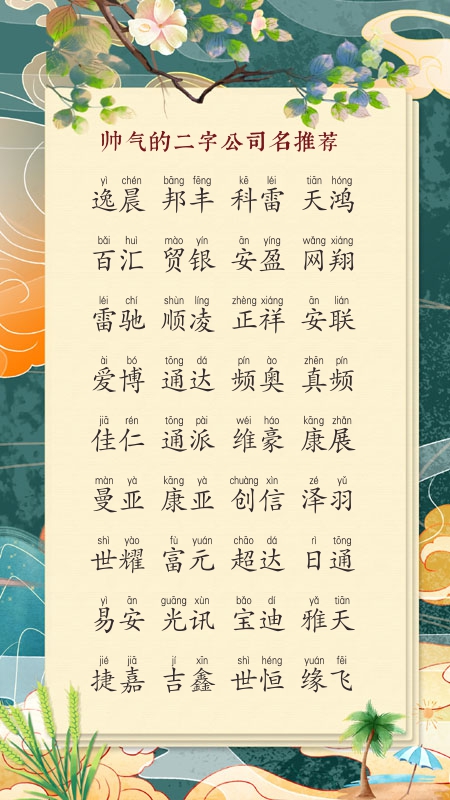 帅气的二字公司名推荐
yì chén bāng fēng kē léi tiān hóng
逸晨 邦丰 科雷 天鸿
bǎi huì mào yín ān yíng wǎng xiáng
百汇 贸银 安盈 网翔
léi chí shùn líng zhèng xiáng ān lián
雷驰 顺凌 正祥 安联
ài bó tōng dá pín ào zhēn pín
爱博 通达 频奥 真频
jiā rén tōng pài wéi háo kāng zhǎn
佳仁 通派 维豪 康展
màn yà kāng yà chuàng xìn zé yǔ
曼亚 康亚 创信 泽羽
shì yào fù yuán chāo dá rì tōng
世耀 富元 超达 日通
yì ān guāng xùn bǎo dí yǎ tiān
易安 光讯 宝迪 雅天
jié jiā jí xīn shì héng yuán fēi
捷嘉 吉鑫 世恒 缘飞